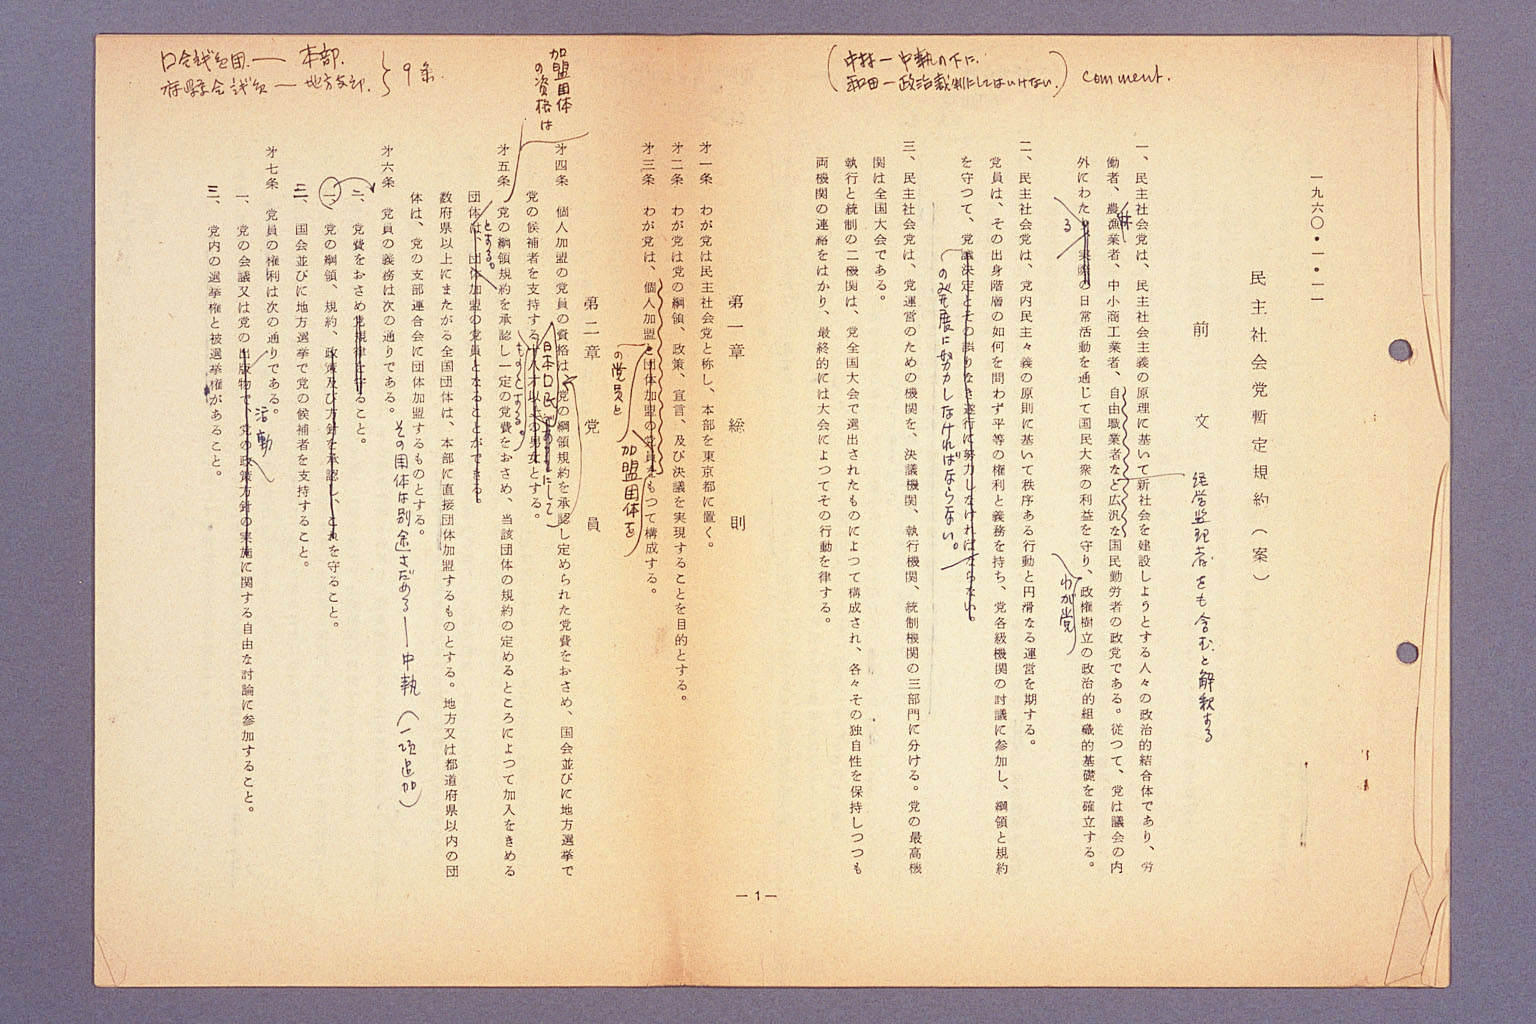 一九六〇・一・一一
民主社会党暫定規約（案）
前文
経営監理者をも含むと解釈する
一、民主社会党は、民主社会主義の原理に基いて新社会を建設しようとする人々の政治的結合体であり、労
働者、農漁業者、中小商工業者、自由職業者など広汎な国民勤労者の政党である。従つて、党は議会の内
外にわたり実際の日常活動を通じて国民大衆の利益を守り、政権樹立の政治的組織的基礎を確立する。
る
わが党
二、民主社会党は、党内民主々義の原則に基いて秩序ある行動と円滑なる運営を期する。
党員は、その出身階層の如何を問わず平等の権利と義務を持ち、党各級機関の討議に参加し、綱領と規約
を守つて、党議決定とその誤りなき遂行に努力しなければならない。
に努力しなければならない。
三、民主社会党は、党運営のための機関を、決議機関、執行機関、統制機関の三部門に分ける。党の最高機
関は全国大会である。
執行と統制の二機関は、党全国大会で選出されたものによつて構成され、各々その独自性を保持しつつも
両機関の連絡をはかり、最終的には大会によつてその行動を律する。
(中村―中執の下に.
和田―政治裁判にしてはいけない.) comment.
第一章　総則
才一条　わが党は民主社会党と称し、本部を東京都に置く。
才二条　わが党は党の綱領、政策、宣言、及び決議を実現することを目的とする。
才三条　わが党は、個人加盟と団体加盟の党員をもつて構成する。
の党員と
加盟団体を
第二章　党員
加盟団体
の資格は
才四条　個人加盟の党員の資格は、党の綱領規約を承認し定められた党費をおさめ、国会並びに地方選挙で
日本国民であつて
党の候補者を支持する十八才以上の男女とする。
ものとする。
才五条　党の綱領規約を承認し一定の党費をおさめ、当該団体の規約の定めるところによつて加入をきめる
とする。
団体は、団体加盟の党員となることができる。
数府県以上にまたがる全国団体は、本部に直接団体加盟するものとする。地方又は都道府県以内の団
体は、党の支部連合会に団体加盟するものとする。
その団体は別途さだめる―中執（一項追加）
才六条　党員の義務は次の通りである。
二、党費をおさめ党規律を守ること。
一、党の綱領、規約、政策及び方針を承認し、これを守ること。
三、国会並びに地方選挙で党の候補者を支持すること。
才七条　党員の権利は次の通りである。
活動
一、党の会議又は党の出版物で、党の政策方針の実施に関する自由な討論に参加すること。
三、党内の選挙権と被選挙権があること。
口会議員団.―本部.
府県会議員―地方支部.
9条.
―1―